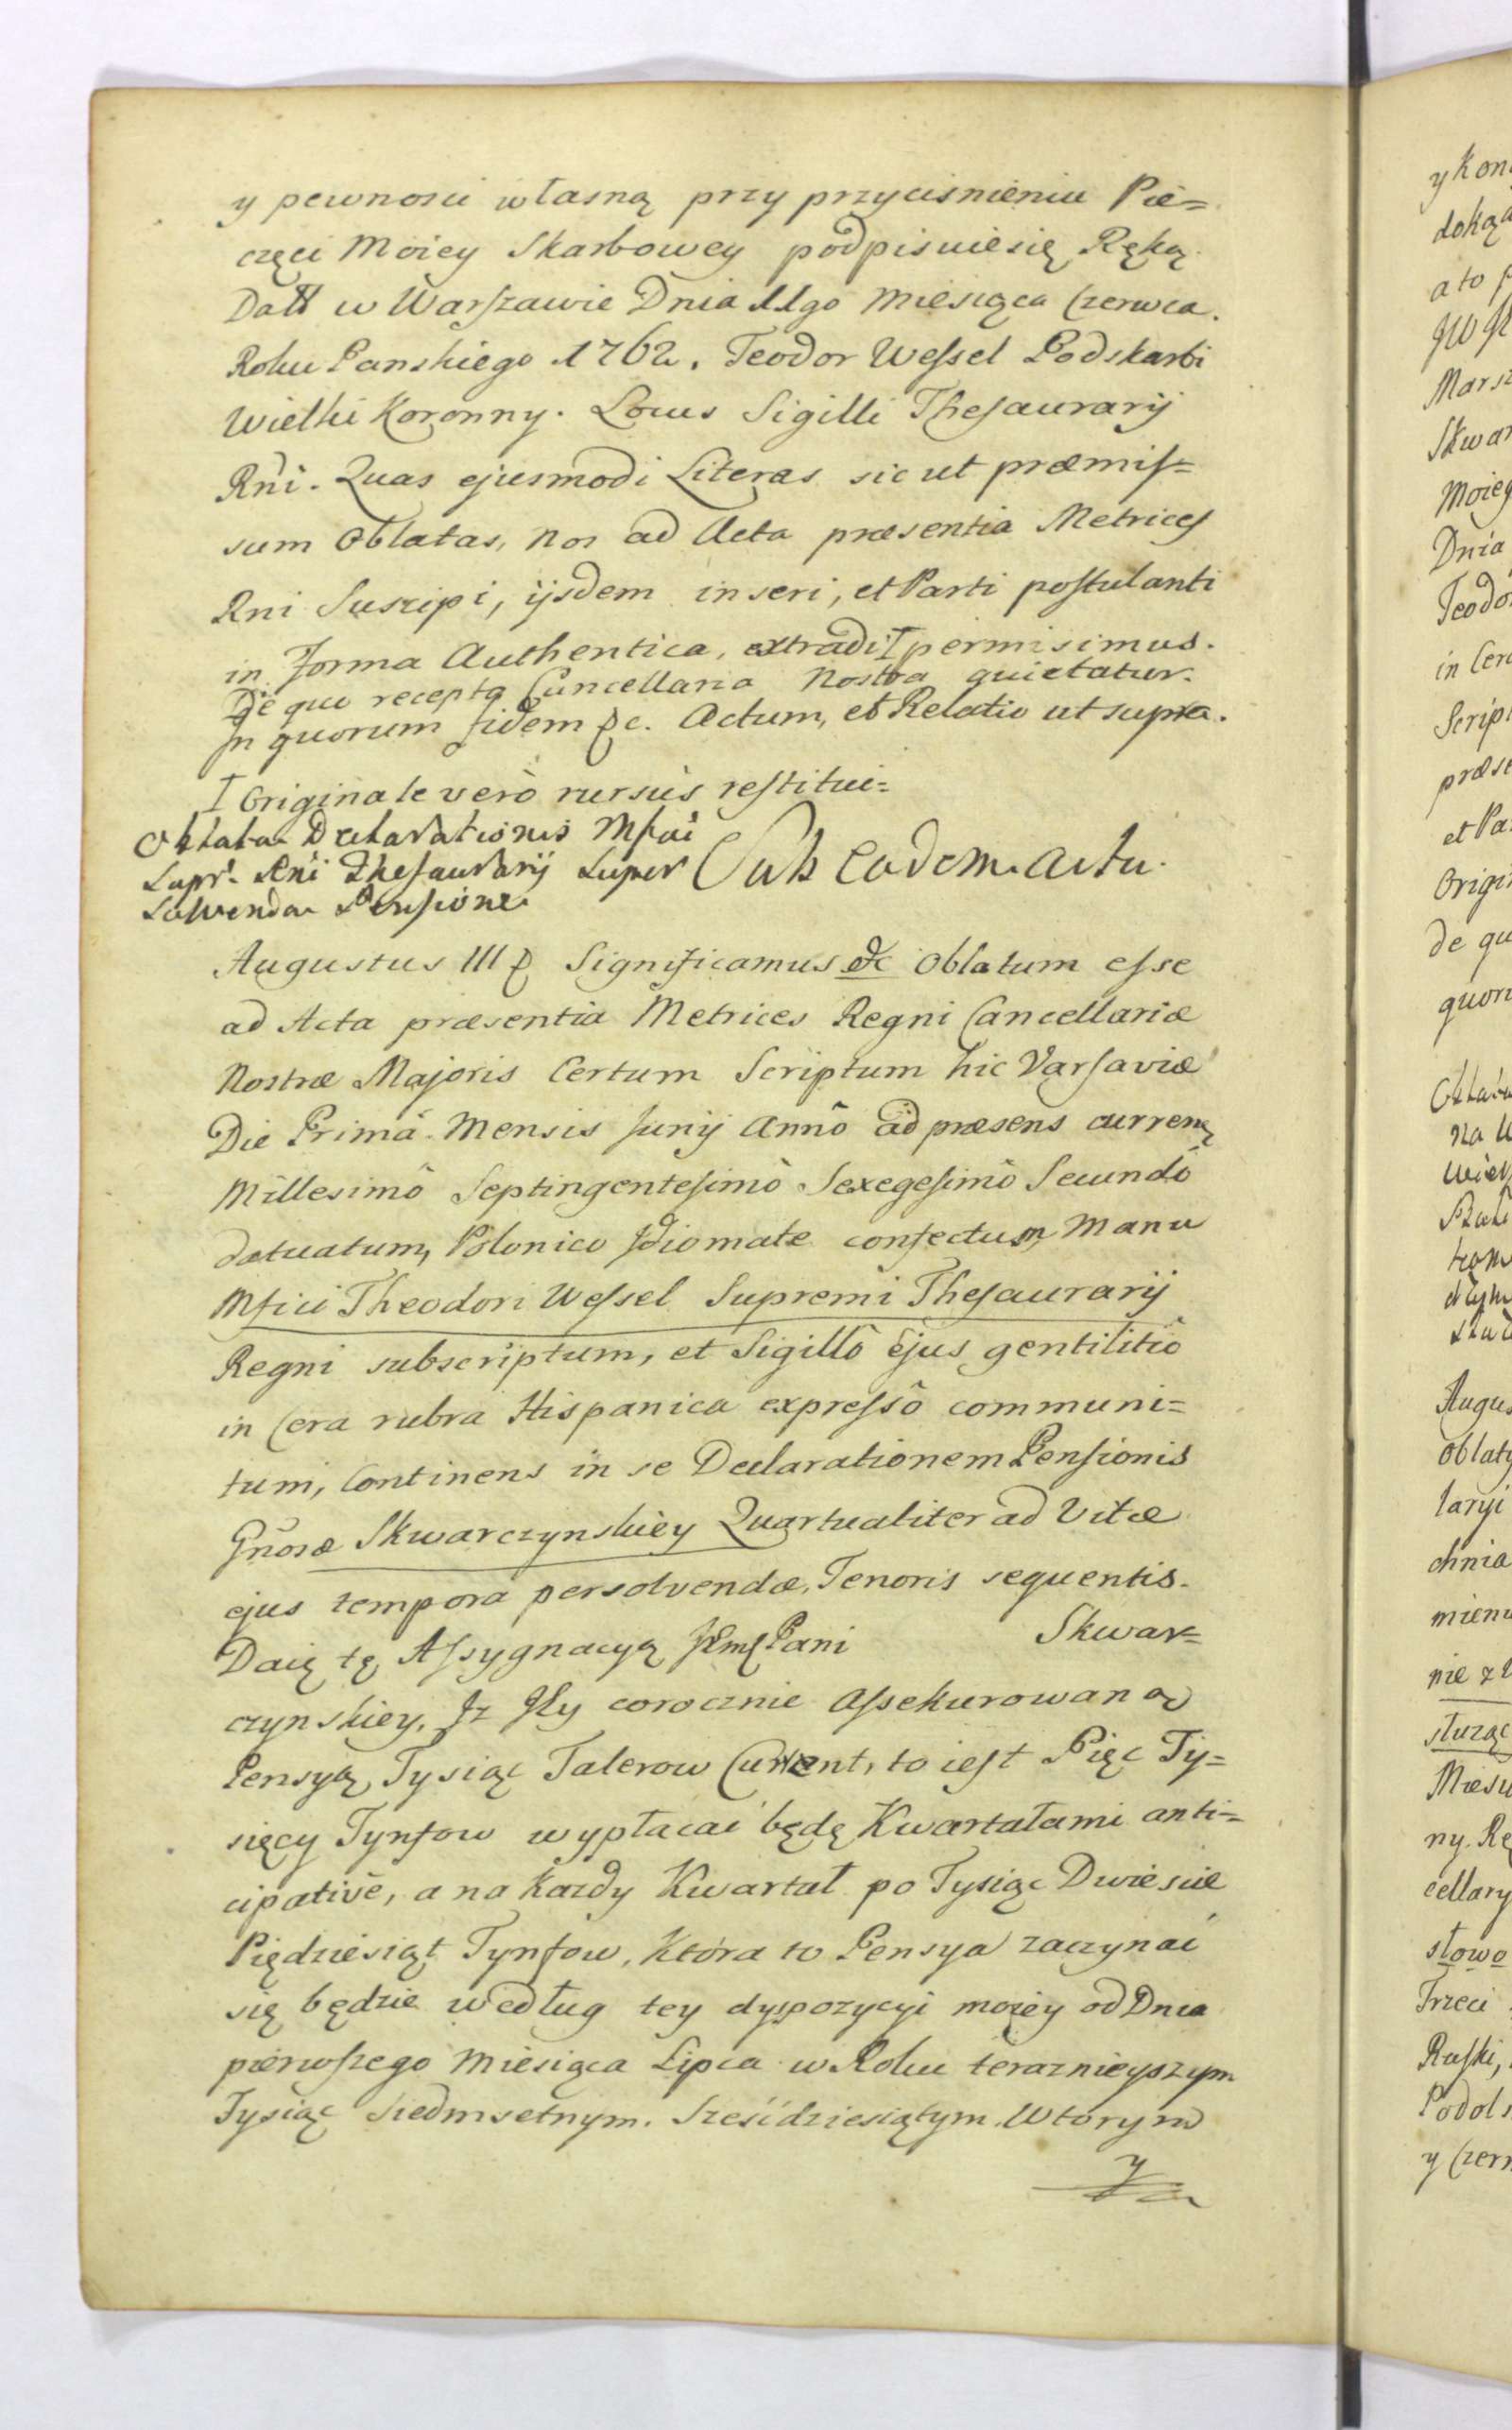 y pewnosci własną przy przycisnieniu Pie=
częci Moiey Skarbowey podpisuiesię Ręką.
Datt w Warszawie Dnia 11go Miesiąca Czerwca.
Roku Panskiego 1762. Teodor Wessel Podskarbi
Wielki Koronny. Locus Sigilli Thesaurarij
Rñi. Quas ejusmodi Literas sic ut præmis=
sum Oblatas, Nos ad Acta præsentia Metrices
Rni Suscipi, ijsdem inseri, et Parti postulanti
in Forma Authentica, extradi permisimus.
De quo recepto Cancellaria Nostra quietatur.
In quorum fidem &c. Actum, et Relatio ut supra.
I Originale verò rursùs restitui=
Oblata Declarationis Mfci
Supr. Rni Thesaurarij super
Solvenda Pensione
Sub eodem actu.
Augustus III & Significamus &c Oblatum esse
ad Acta præsentia Metrices Regni Cancellariæ
Nostræ Majoris Certum Scriptum hic Varsaviæ
Die Primâ Mensis Junij Annô ad præsens curren
Millesimô Septingentesimô Sexegesimô Secundô
datuatum, Polonico Idiomate confectum, Manu
Mfici Theodori Wessel Supremi Thesaurarij
Regni subscriptum, et Sigillô Ejus gentilitiô
in Cera rubra Hispanica expressô communi=
tum, Continens in se Declarationem Pensionis
Gñosæ Skwarczynskiey Quartualiter ad Vitæ
ejus tempora persolvendæ, Tenoris sequentis.
Daię tę Assygnacyą Pani Skwar=
czynskiey, Iz Jey corocznie Assekurowaną
Pensyą, Tysiąc Talerow Current, to iest Pięc Ty=
sięcy Tynfow wypłacać będę Kwartałami anti=
cipativè, a na kazdy Kwartał po Tysiąc Dwiescie
Piędziesiąt Tynfow, Ktora to Pensya zaczynać
się będzie według tey dyspozycyi moiey od Dnia
pierwszego Miesiąca Lipca w Roku teraznieyszym
Tysiąc Siedmsetnym. Sześćdziesiątym Wtorym
y